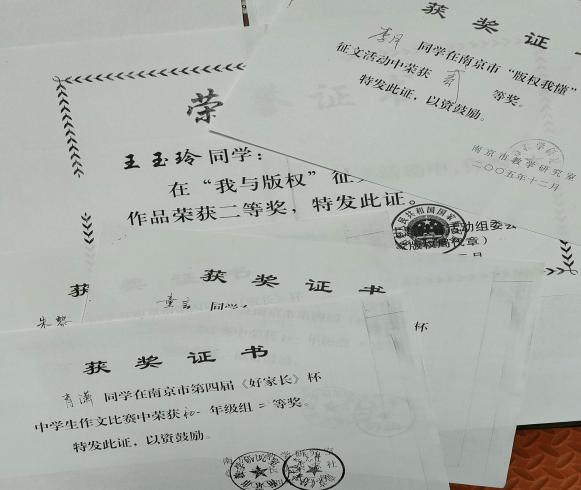 获奖证书
李月 同学在南京市“版权我懂”
征文活动中荣获 等奖。
特发此证，以资鼓励。
南京市教学研究室
二〇〇五年十二月
荣
王玉玲同学：
在“我与版权”征文
作品荣获二等奖，特发此证。
获
朱黎
获奖证书
童言 同学
杯
获奖证书
肖潇 同学在南京市第四届《好家长》杯
中学生作文比赛中荣获初一年级组二等奖。
特发此证，以资鼓励。